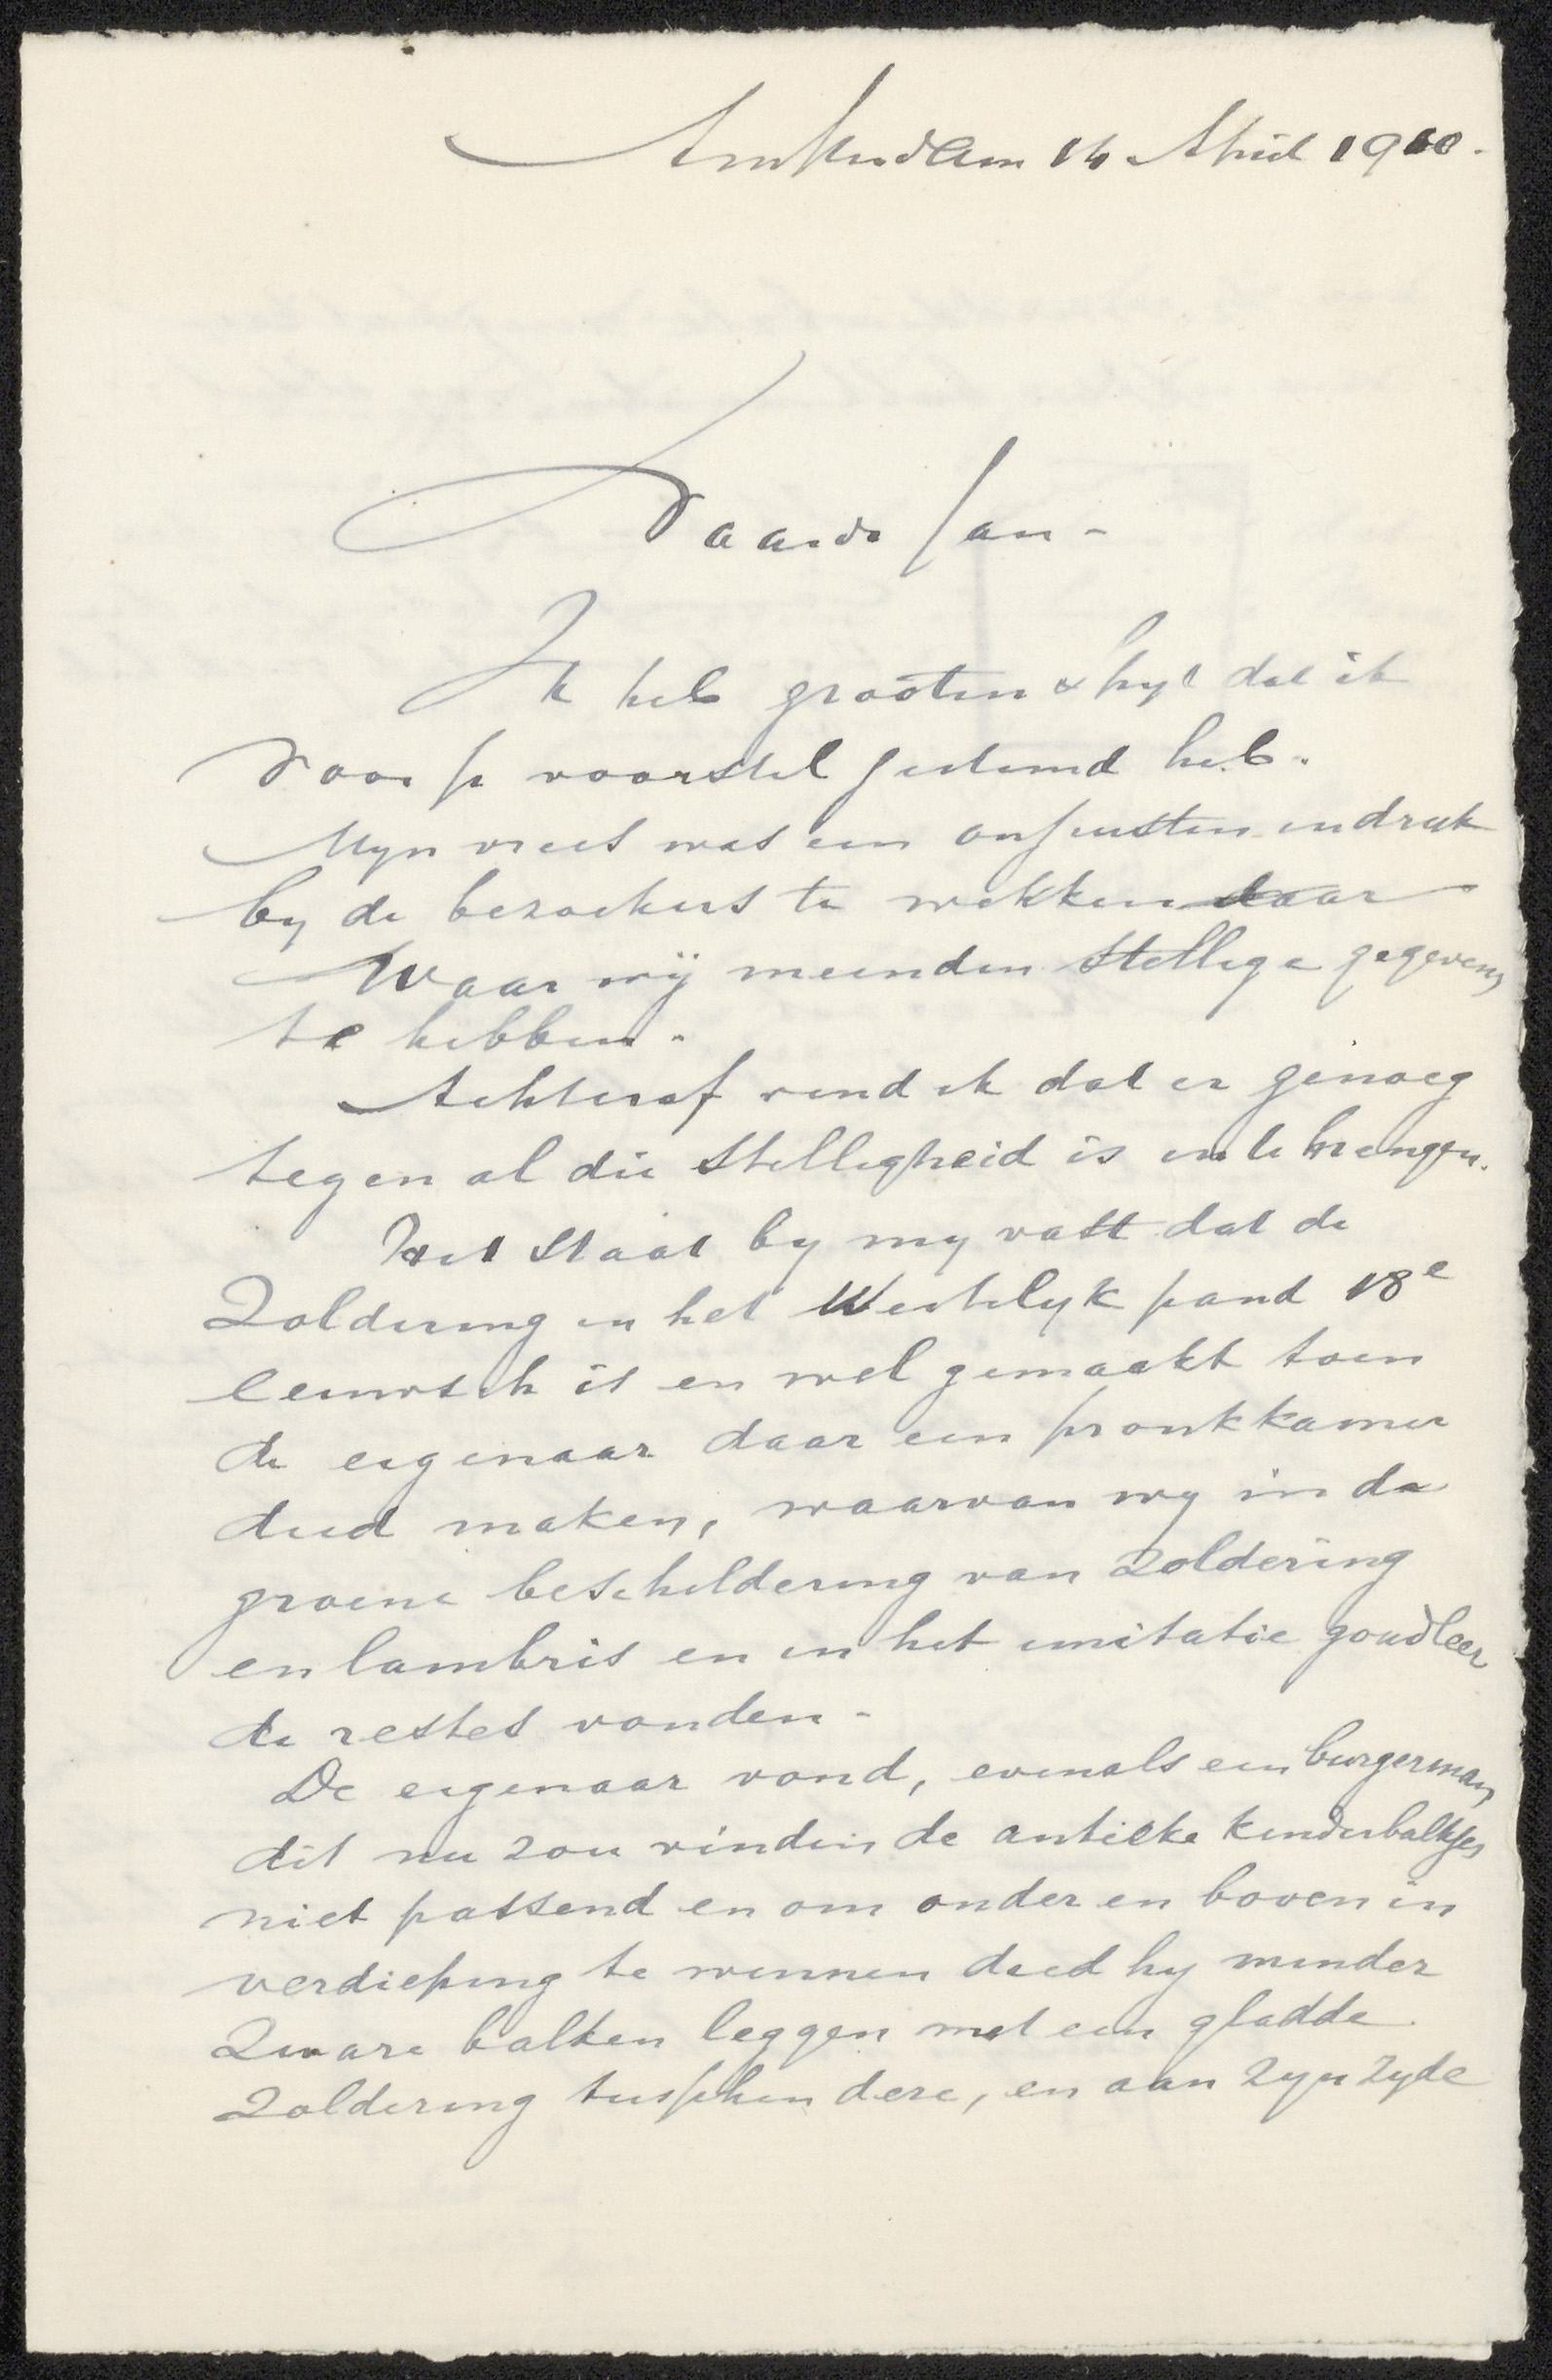 Amsterdam 14 April 1910.
Waarde Jan -
Ik heb grooten spyt dat ik
voor je voorstel gestemd heb.
Myn vrees was een onjuisten indruk
by de bezoekers te wekken daar
Waar wij meenden stellige gegevens
te hebben.
Achteraf vind ik dat er genoeg
tegen al die stelligheid is in te brengen.
Het staat by my vast dat de
Zoldering in het Westelyk pand 18e
eeuwsch is en wel gemaakt toen
de eigenaar daar een pronkkamer
deed maken, waarvan wy in de
groene beschildering van zoldering
en lambris en in het imitatie goudleer
de restes vonden -
De eigenaar vond, evenals een burgerman
dit nu zou vinden de antieke kinderbalkjes
niet passend en om onder en boven in
verdieping te winnen deed hy minder
zware balken leggen met een gladde
zoldering tusschen deze, en aan zyn zyde